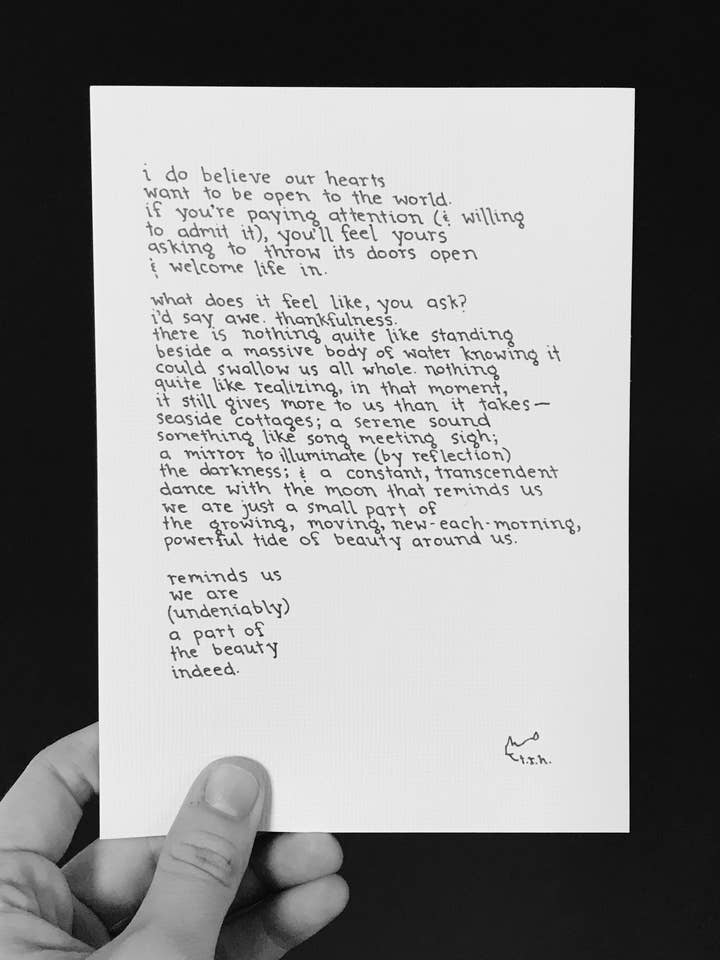 i do believe our hearts
want to be open to the world.
if you're paying attention (& willing
to admit it), you'll feel yours
asking to throw its doors open
& welcome life in.
what does it feel like, you ask?
i'd say awe. thankfulness.
there is nothing quite like standing
beside a massive body of water knowing it
could swallow us all whole. nothing
quite like realizing, in that moment,
it still gives more to us than it takes—
seaside cottages; a serene sound
something like song meeting sigh;
a mirror to illuminate (by reflection)
the darkness; & a constant, transcendent
dance with the moon that reminds us
we are just a small part of
the growing, moving, new-each-morning,
powerful tide of beauty around us.
reminds us
we are
(undeniably)
a part of
the beauty
indeed.
t.r.h.